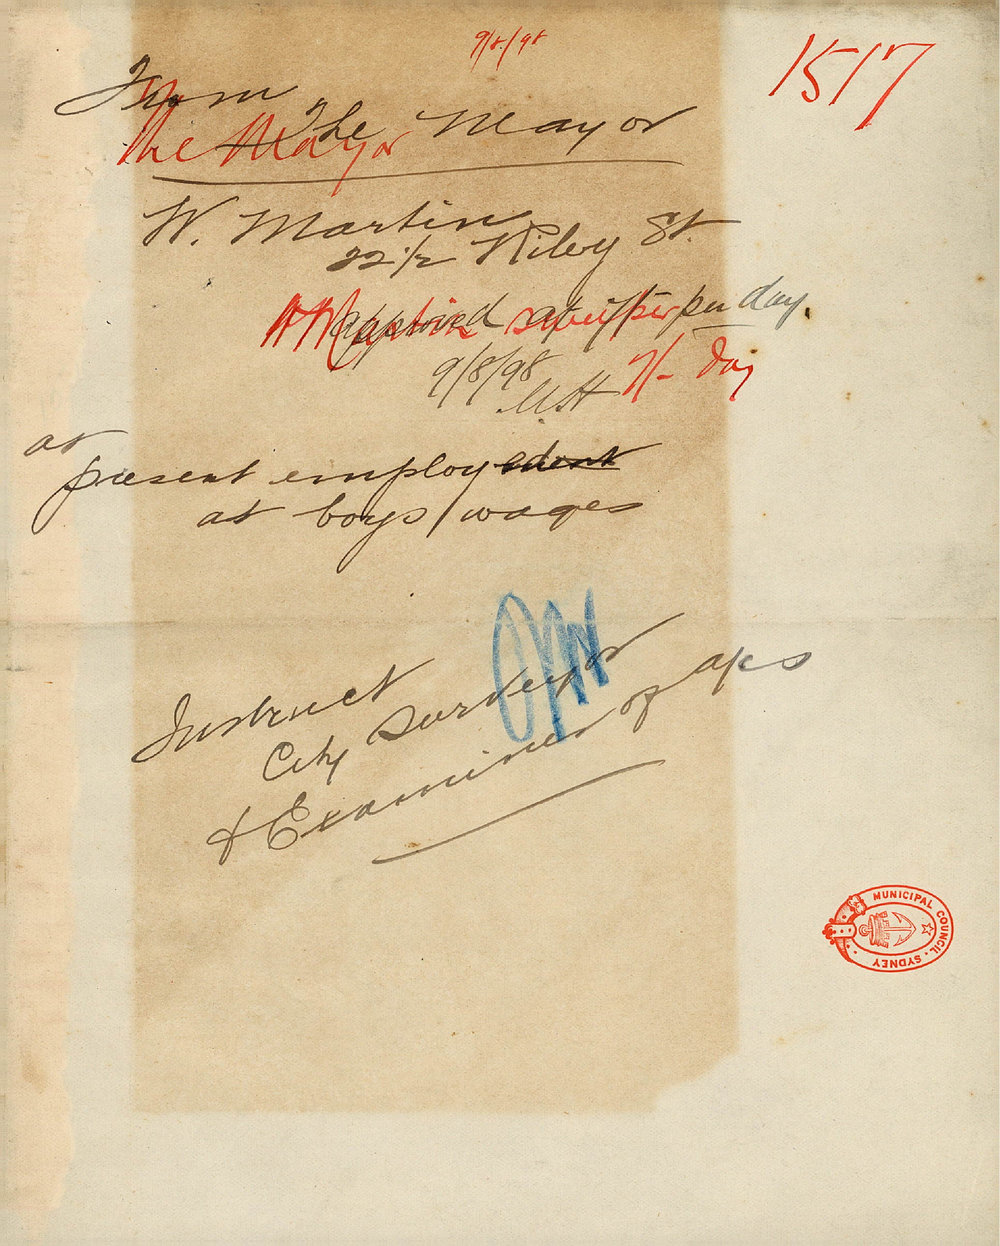 9/8/98
1517
From The Mayor
The Mayor
W. Martin
22½ Riley St.
approved at 7/- per day,
W Martin sweeper
7/- Day
9/8/98
at
present employ
at boys wages
Instruct
City Surveyor
& Examiner of a/cs
MUNICIPAL COUNCIL · SYDNEY